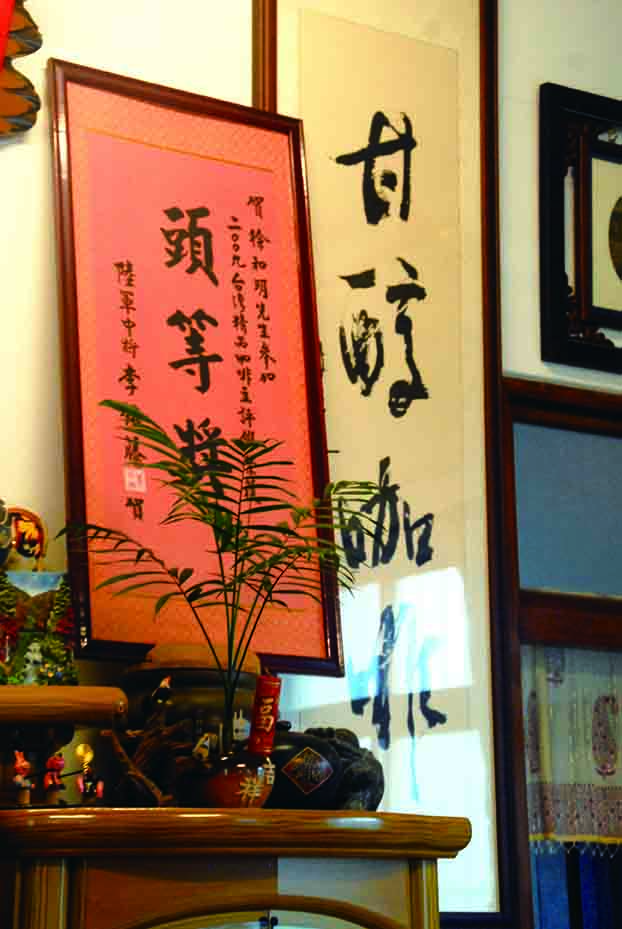 甘醇咖啡
賀徐和明先生參加
二〇〇九台灣精品咖啡豆評鑑
頭等獎
陸軍中將李 藤賀
吉祥